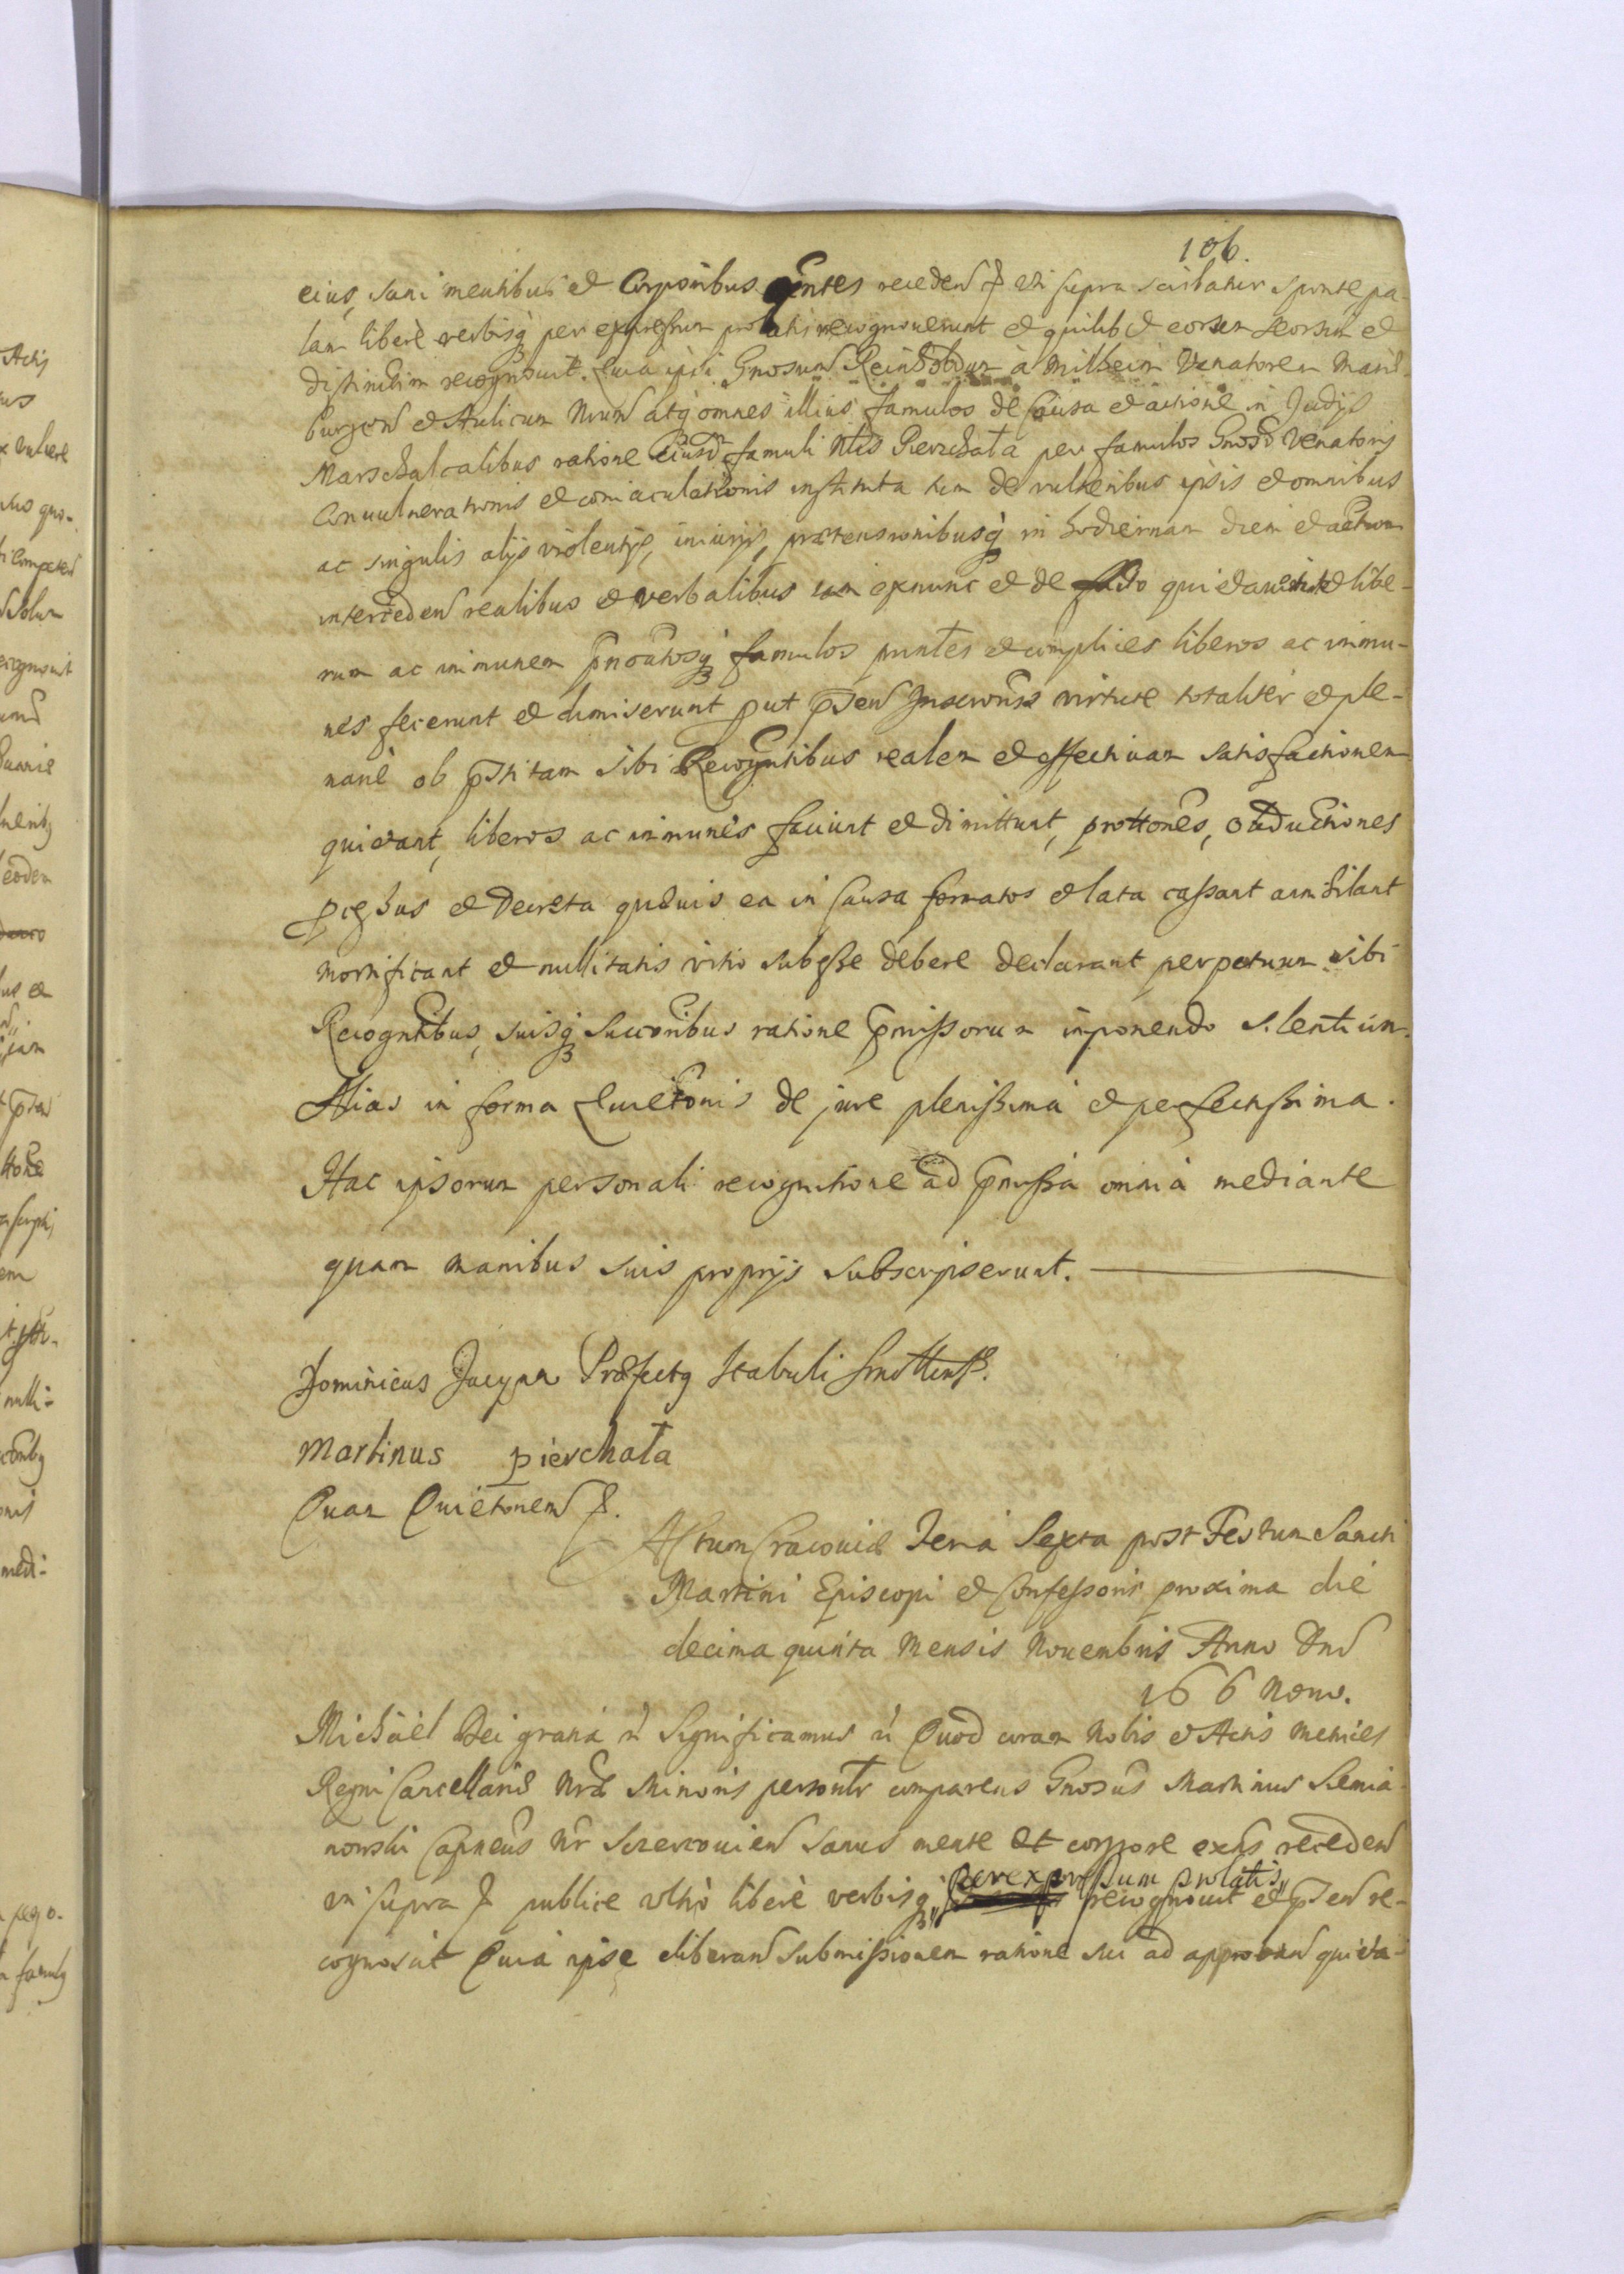 106.
eius, sani mentibus et Corporibus exntes receden & uti supra scribatur sponte pa-
lam liberè verbisq per expressum prolatis recognouerunt et quilibet eorum seorsim et
distinctim recognouit. Quia ipsi Gnosum Reinholdum à Milheim Venatorem Marie-
burgen et Aulicum Nrum atq omnes illius famulos de Causa et actione in Judijs
Marschalcalibus ratione eiusd famuli Nlis Pierzchata per famulos Gnosi Venatoris
Conuulnerationis et coniaculationis instituta tum de vulneribus ipsis et omnibus
ac singulis alijs violentijs, iniurijs, prætensionibusq in hodiernam diem et actum
interceden realibus et verbalibus iam exnunc et de facto quietauerunt libe-
rum ac immunem pnoatosq famulos pnntes et complices liberos ac immu-
nes fecerunt et dimiserunt put pnten Inscronis virtute totaliter et ple-
narie ob pstitam sibi Recognntibus realem et effectiuam satisfactionem
quietant, liberos ac immunes faciunt et dimittunt, prottones, obductiones
pcessus et Decreta quæuis ea in Causa formatos et lata cassant annihilant
mortificant et nullitatis vitio subesse debere declarant perpetuum sibi
Recognntibus, suisq Succoribus ratione pmissorum imponendo silentium.
Alias in forma Quietonis de jure plenissima et perfectissima.
Hac ipsorum personali recognitione ad pmissa omnia mediante
quam manibus suis proprijs subscripserunt.
Dominicus Jacyna Præfectg Stabuli
Martinus pierchata
Quam Quietonem &.
Actum Cracouiæ Feria Sexta post Festum Sancti
Martini Episcopi et Confessoris proxima die
decima quinta Mensis Nouembris Anno Dni
166 nono.
Michael Dei gratia & Significamus & Quod coram Nobis et Actis Metrices
Regni Cancellariæ Nræ Minoris personlr comparens Gnosus Martinus Siemia-
nowski Capneus Nr sanus mente et corpore exns receden
uti supra & publice vltrò liberè verbisq per expressum prolatis recognouit et pnten re-
cognoscit Quia ipse eliberan submissionem ratione sui ad approban quieta-